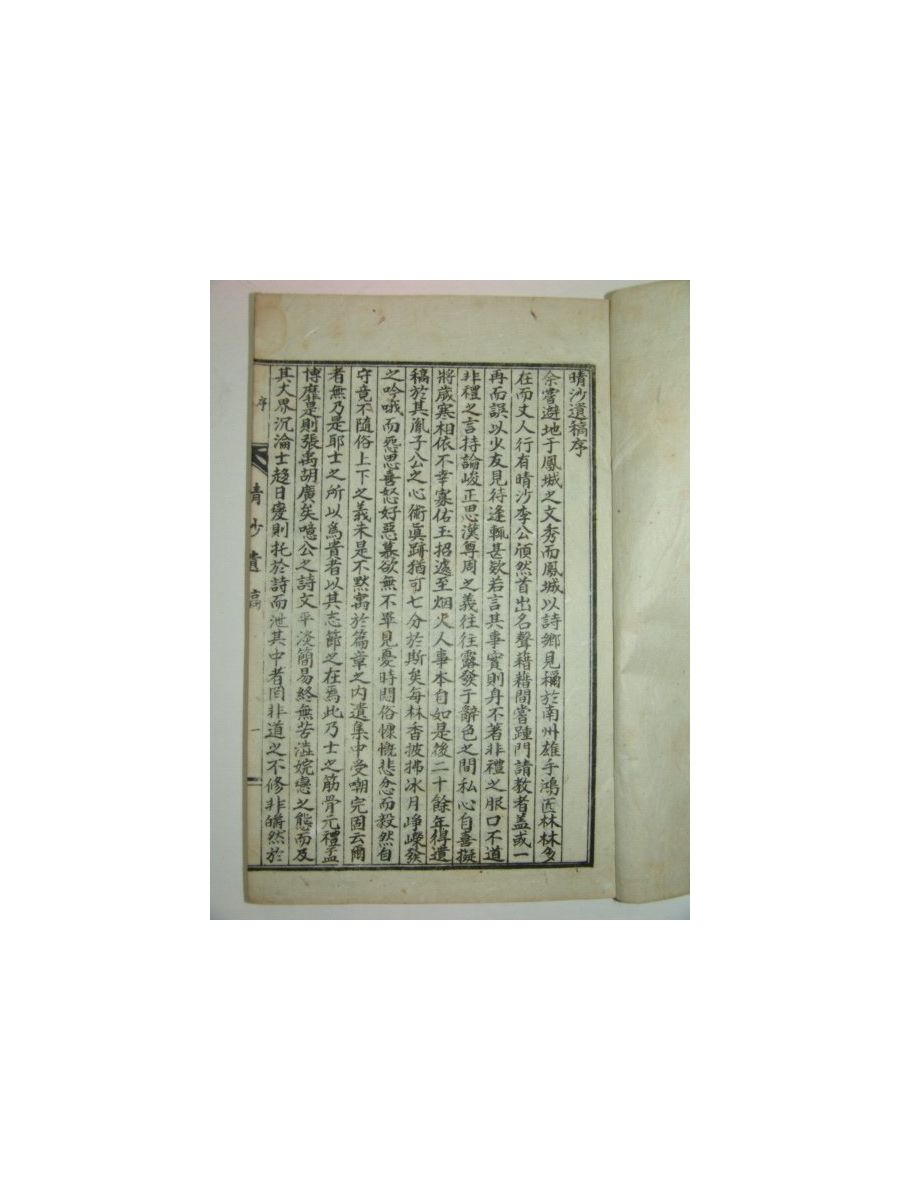 晴沙遺稿序
余嘗避地于鳳城之文秀而鳳城以詩鄉見稱於南州雄手鴻匠林林多
在而丈人行有晴沙李公頎然首出名聲藉藉間嘗踵門請敎者盖或一
再而誤以少友見待逢輒甚欵若言其事實則身不著非禮之服口不道
非禮之言持論峻正思漢尊周之義往往露發于辭色之間私心自喜擬
將歲寒相依不幸寡佑玉招遽至烟火人事本自如是後二十餘年得遺
稿於其胤子公之心術眞跡猶可七分於斯矣每林香披拂冰月崢嶸發
之吟哦而思喜怒好惡慕欲無不畢見憂時悶俗慷慨悲忿而毅然自
守竟不隨俗上下之義未是不默寓於篇章之內遺集中受嘲完固云爾
者無乃是耶士之所以爲貴者以其志節之在焉此乃士之筋骨元禮孟
博靡是則張禹胡廣矣噫公之詩文平淡簡易終無苦澁婉戀之態而及
其大界沉淪士趍日變則托於詩而泄其中者罔非道之不修非皭然於
序
晴沙遺稿
一